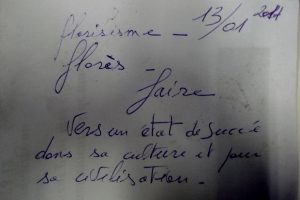 florisisme - 13/01 2014
florès -
faire
vers un état de succé
dans sa culture et pour
sa civilisation -